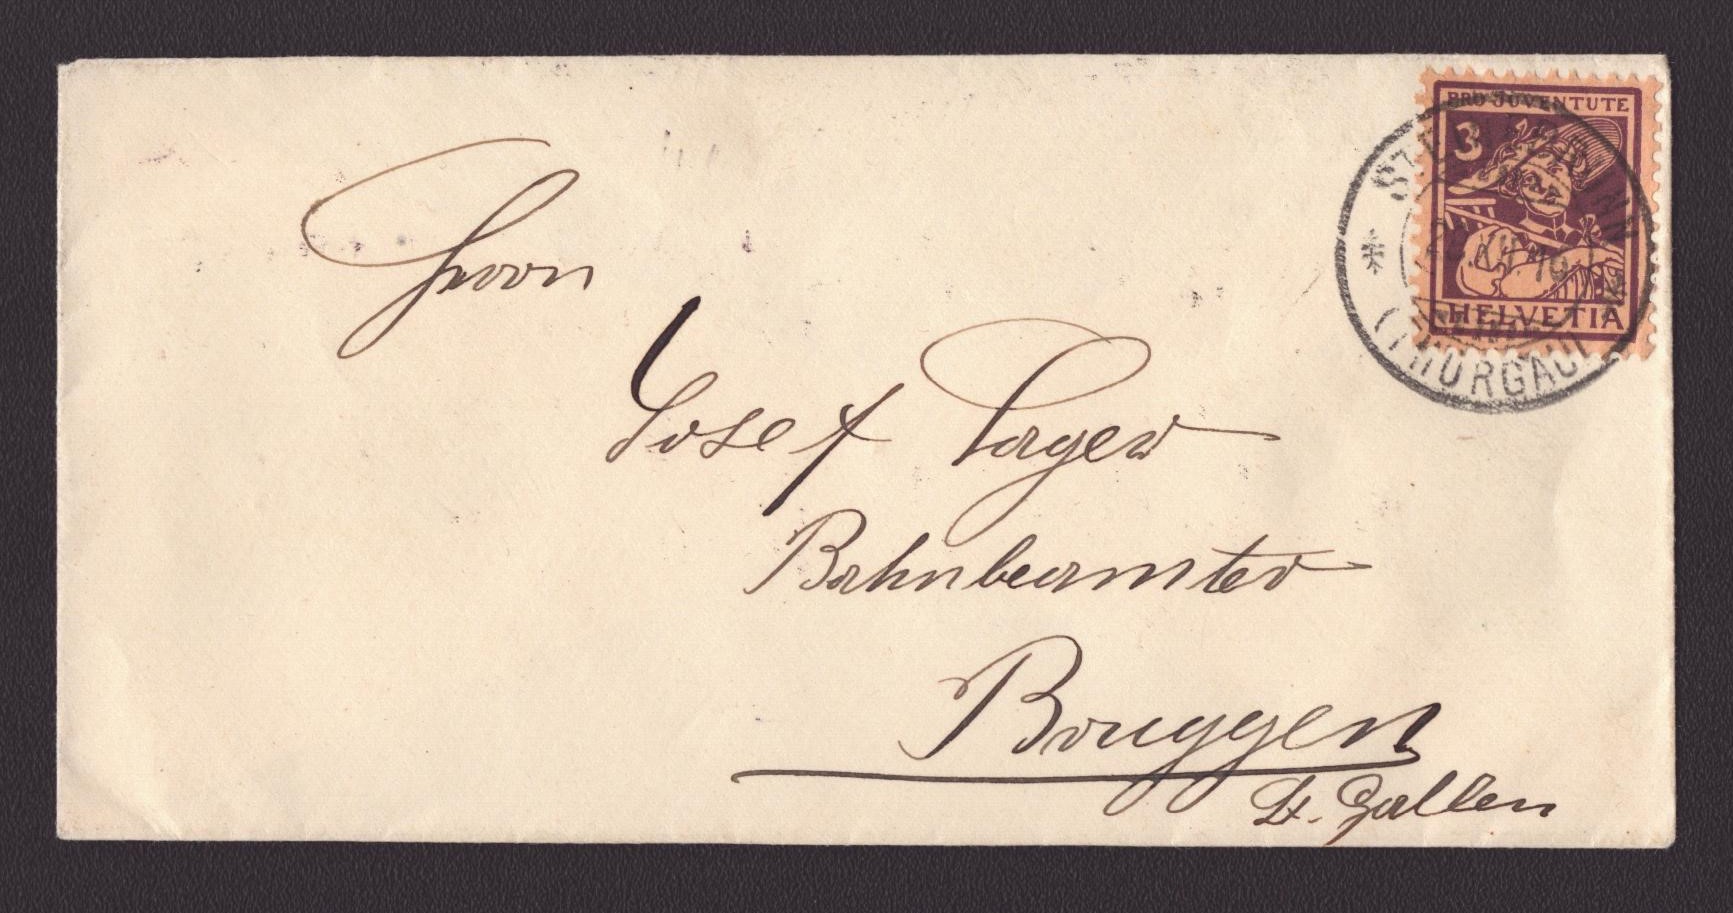 PRO JUVENTUTE
3
HELVETIA
(THURGAU)
Herrn
Josef Lager
Bahnbeamter
Bruggen
St. Gallen